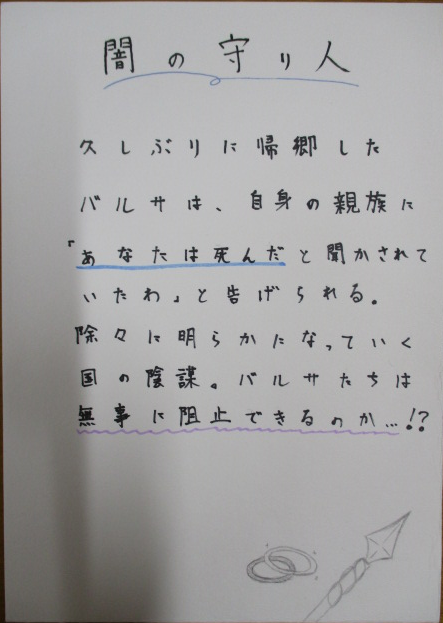 闇の守り人
久しぶりに帰郷した
バルサは、自身の親族に
「あなたは死んだと聞かされて
いたわ」と告げられる。
除々に明らかになっていく
国の陰謀。バルサたちは
無事に阻止できるのか…!?